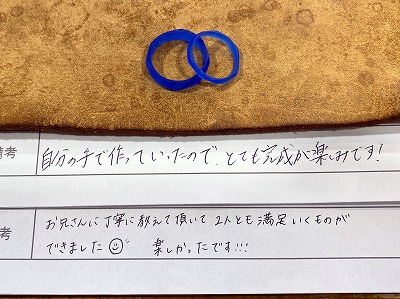 備考
自分の手で作っていったので、とても完成が楽しみです!
考
お兄さんに丁寧に教えて頂いて2人とも満足いくものが
できました☺ 楽しかったです!!!